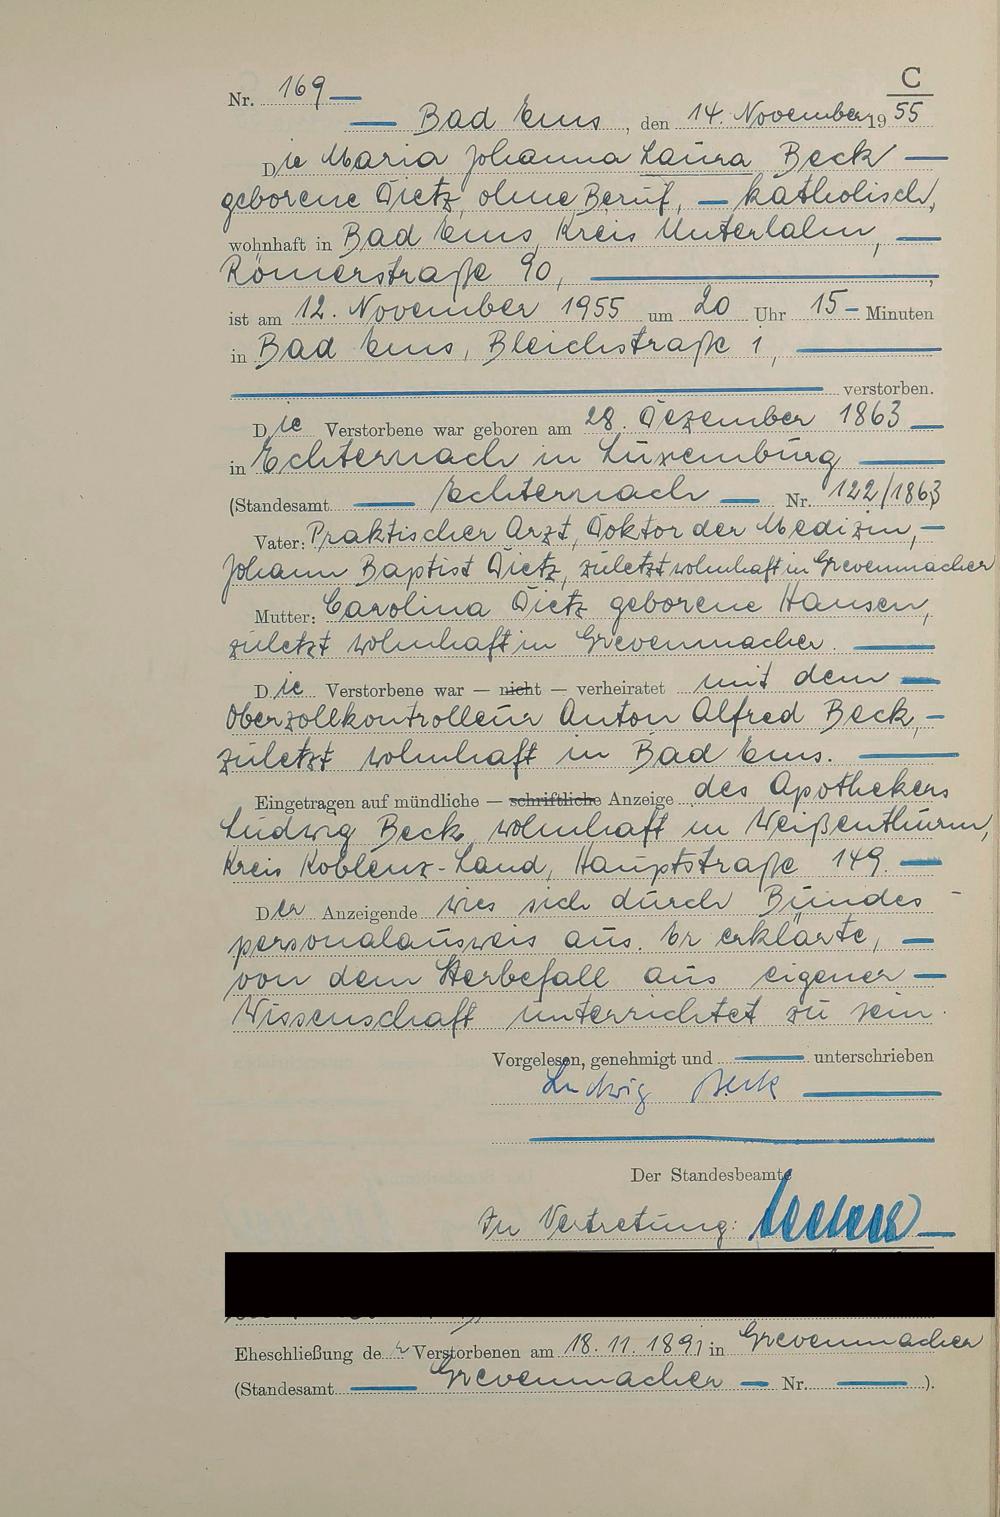 C
Nr. 169
55
Bad Ems, den 14. November 19
Die Maria Johanna Laura Beck
geborene Dietz, ohne Beruf, katholisch,
wohnhaft in Bad Ems, Kreis Unterlahn,
Römerstraße 90,
ist am 12. November 1955 um 20 Uhr 15 Minuten
in Bad Ems, Bleichstraße 1,
verstorben.
Die Verstorbene war geboren am 28. Dezember 1863
in Echternach in Luxemburg
(Standesamt Echternach Nr. 122/1863
Vater: Praktischer Arzt, Doktor der Medizin,
Johann Baptist Dietz, zuletzt wohnhaft in Grevenmacher
Mutter: Carolina Dietz geborene Hansen,
zuletzt wohnhaft in Grevenmacher.
Die Verstorbene war — nicht — verheiratet mit dem
Oberzollkontrolleur Anton Alfred Beck,
zuletzt wohnhaft in Bad Ems.
Eingetragen auf mündliche — schriftliche Anzeige des Apothekers
Ludwig Beck, wohnhaft in Weißenthurm,
Kreis Koblenz-Land, Hauptstraße 149.
Der Anzeigende wies sich durch Bundes-
personalausweis aus. Er erklärte,
von dem Sterbefall aus eigener
Wissenschaft unterrichtet zu sein.
Vorgelesen, genehmigt und unterschrieben
Ludwig Beck
Der Standesbeamte
In Vertretung:
Eheschließung der Verstorbenen am 18. 11. 1891 in Grevenmacher
(Standesamt Grevenmacher Nr. ).